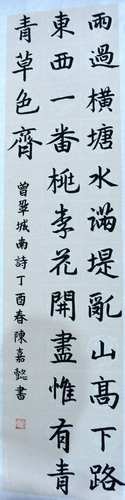 雨過橫塘水滿堤亂山高下路
東西一番桃李花開盡惟有青
青草色齊
曾鞏城南詩丁酉春陳嘉懿書